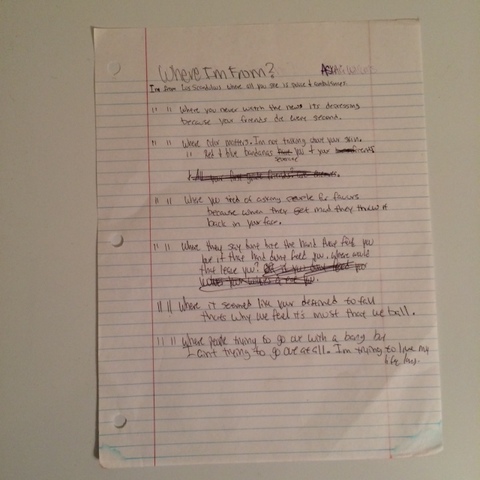 Where I'm From?
I'm from Los Scandalous where all you see is
" " Where you never watch the news its depressing
because your friends die every second.
" " Where color matters. I'm not talking about your skin.
" Red & blue bandanas separate you & your friends
" " Where you sick of asking people for favors
because when they get mad they throw it
back in your face.
" " Where they say don't bite the hand that feed you
but if that hand don't feed you. Where would
that leave you?
" " Where it seemed like your destined to fail
that's why we feel it's must that we ball.
" " Where people trying to go out with a bang but
I ain't trying to go out at all. I'm trying to live my
life